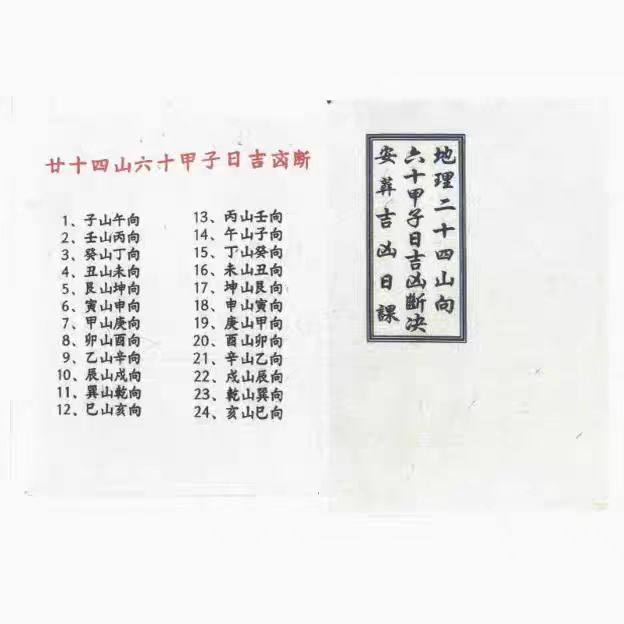 廿十四山六十甲子日吉凶断
1、子山午向
2、壬山丙向
3、癸山丁向
4、丑山未向
5、艮山坤向
6、寅山申向
7、甲山庚向
8、卯山酉向
9、乙山辛向
10、辰山戌向
11、巽山乾向
12、巳山亥向
13、丙山壬向
14、午山子向
15、丁山癸向
16、未山丑向
17、坤山艮向
18、申山寅向
19、庚山甲向
20、酉山卯向
21、辛山乙向
22、戌山辰向
23、乾山巽向
24、亥山巳向
地理二十四山向
六十甲子日吉凶斷决
安葬吉凶日課